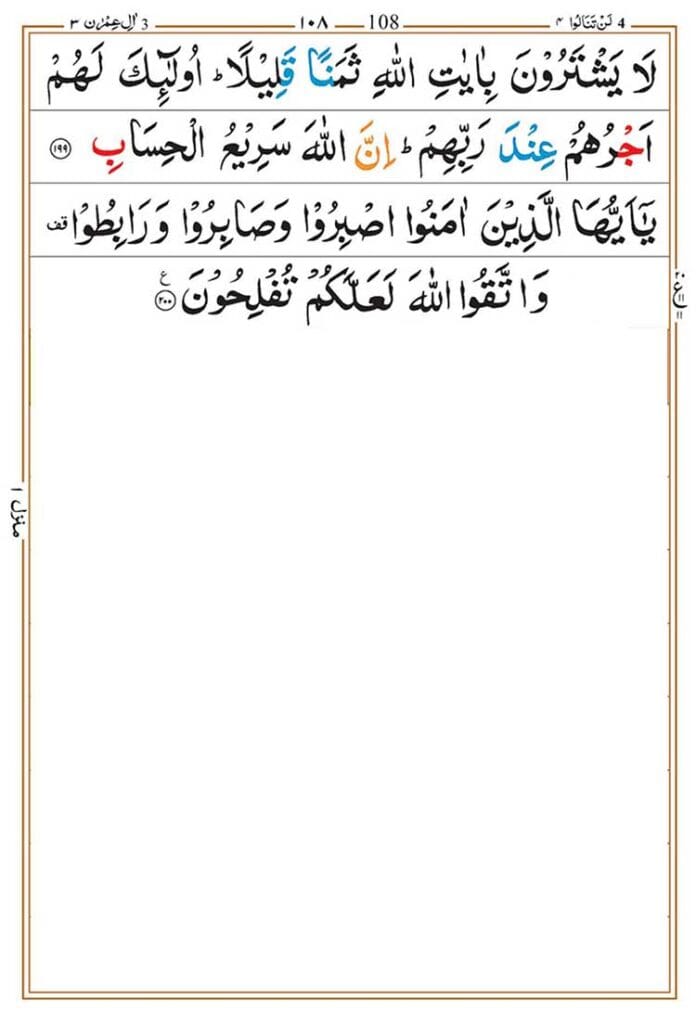 3 اٰلِ عِمْرٰن ٣ ١٠٨ 108 4 لَنْ تَنَالُوْا ٤
لَا يَشْتَرُوْنَ بِاٰيٰتِ اللّٰهِ ثَمَنًا قَلِيْلًا ؕ اُولٰٓئِكَ لَهُمْ
اَجْرُهُمْ عِنْدَ رَبِّهِمْ ؕ اِنَّ اللّٰهَ سَرِيْعُ الْحِسَابِ ﴿١٩٩﴾
يٰۤاَيُّهَا الَّذِيْنَ اٰمَنُوا اصْبِرُوْا وَصَابِرُوْا وَرَابِطُوْا قف
وَاتَّقُوا اللّٰهَ لَعَلَّكُمْ تُفْلِحُوْنَ ﴿٢٠٠﴾ ع
منزل ١